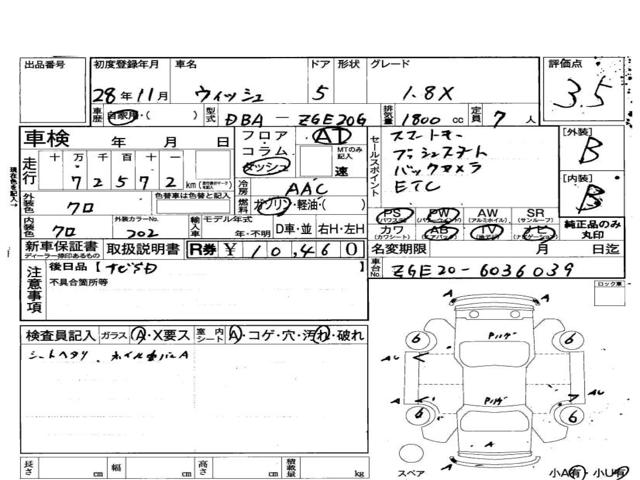 出品番号 初度登録年月 車名 ドア 形状 グレード 評価点
28年11月 ウィッシュ 5 1.8X 3.5
車歴 自家用・( ) 型式 DBA－ZGE20G 排気量 1800cc 定員 7人
車検 年 月 日
フロア コラム ダッシュ AT MTのみ記入 速
セールスポイント スマートキー
プッシュスタート
バックカメラ
ETC
[外装] B
[内装] B
現色を記入→
走行 十万千百十一
72572km
冷房 AAC
燃料 ガソリン・軽油・( )
外装色 クロ 色替車は色替と記入
内装色 クロ 外装カラーNo. 202
輸入車 モデル年式 年・不明 D車・並 右H・左H
PS (パワステ) PW (パワーウィンド) AW (アルミホイル) SR (サンルーフ)
カワ (カワシート) AB (エアバッグ) TV ナビ (ナビゲーション)
純正品のみ丸印
新車保証書 ディーラー捺印あるもの 取扱説明書 R券 ¥10,460
名変期限 月 日迄
車台No. ZGE20-6036039
注意事項 後日品【ナビSD
不具合箇所等
ロック車
検査員記入 ガラス A・X要ス 室内シート A・コゲ・穴・汚れ・破れ
シートヘタリ、ホイルカバーA
A A
6 6
AU A
A
6 6
A A
スペア
小A有・小U有
長さ cm 幅 cm 高さ cm 積載量 kg